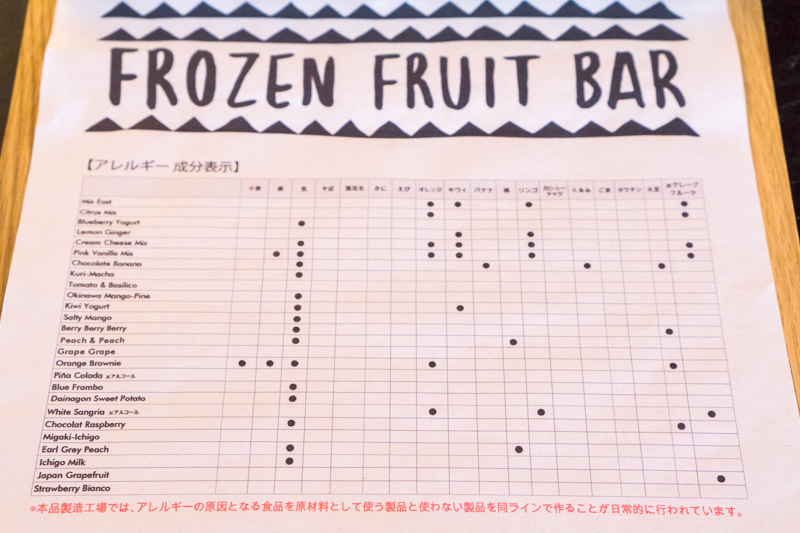 FROZEN FRUIT BAR
【アレルギー 成分表示】
小麦 卵 乳 そば 落花生 かに えび オレンジ キウイ バナナ 桃 リンゴ カシューナッツ くるみ ごま ゼラチン 大豆 ※グレープフルーツ
Mix East
Citrus Mix
Blueberry Yogurt
Lemon Ginger
Cream Cheese Mix
Pink Vanilla Mix
Chocolate Banana
Kuri-Macha
Tomato & Basilico
Okinawa Mango-Pine
Kiwi Yogurt
Salty Mango
Berry Berry Berry
Peach & Peach
Grape Grape
Orange Brownie
Piña Colada ※アルコール
Blue Frambo
Dainagon Sweet Potato
White Sangria ※アルコール
Chocolat Raspberry
Migaki-Ichigo
Earl Grey Peach
Ichigo Milk
Japan Grapefruit
Strawberry Bianco
※本品製造工場では、アレルギーの原因となる食品を原材料として使う製品と使わない製品を同ラインで作ることが日常的に行われています。